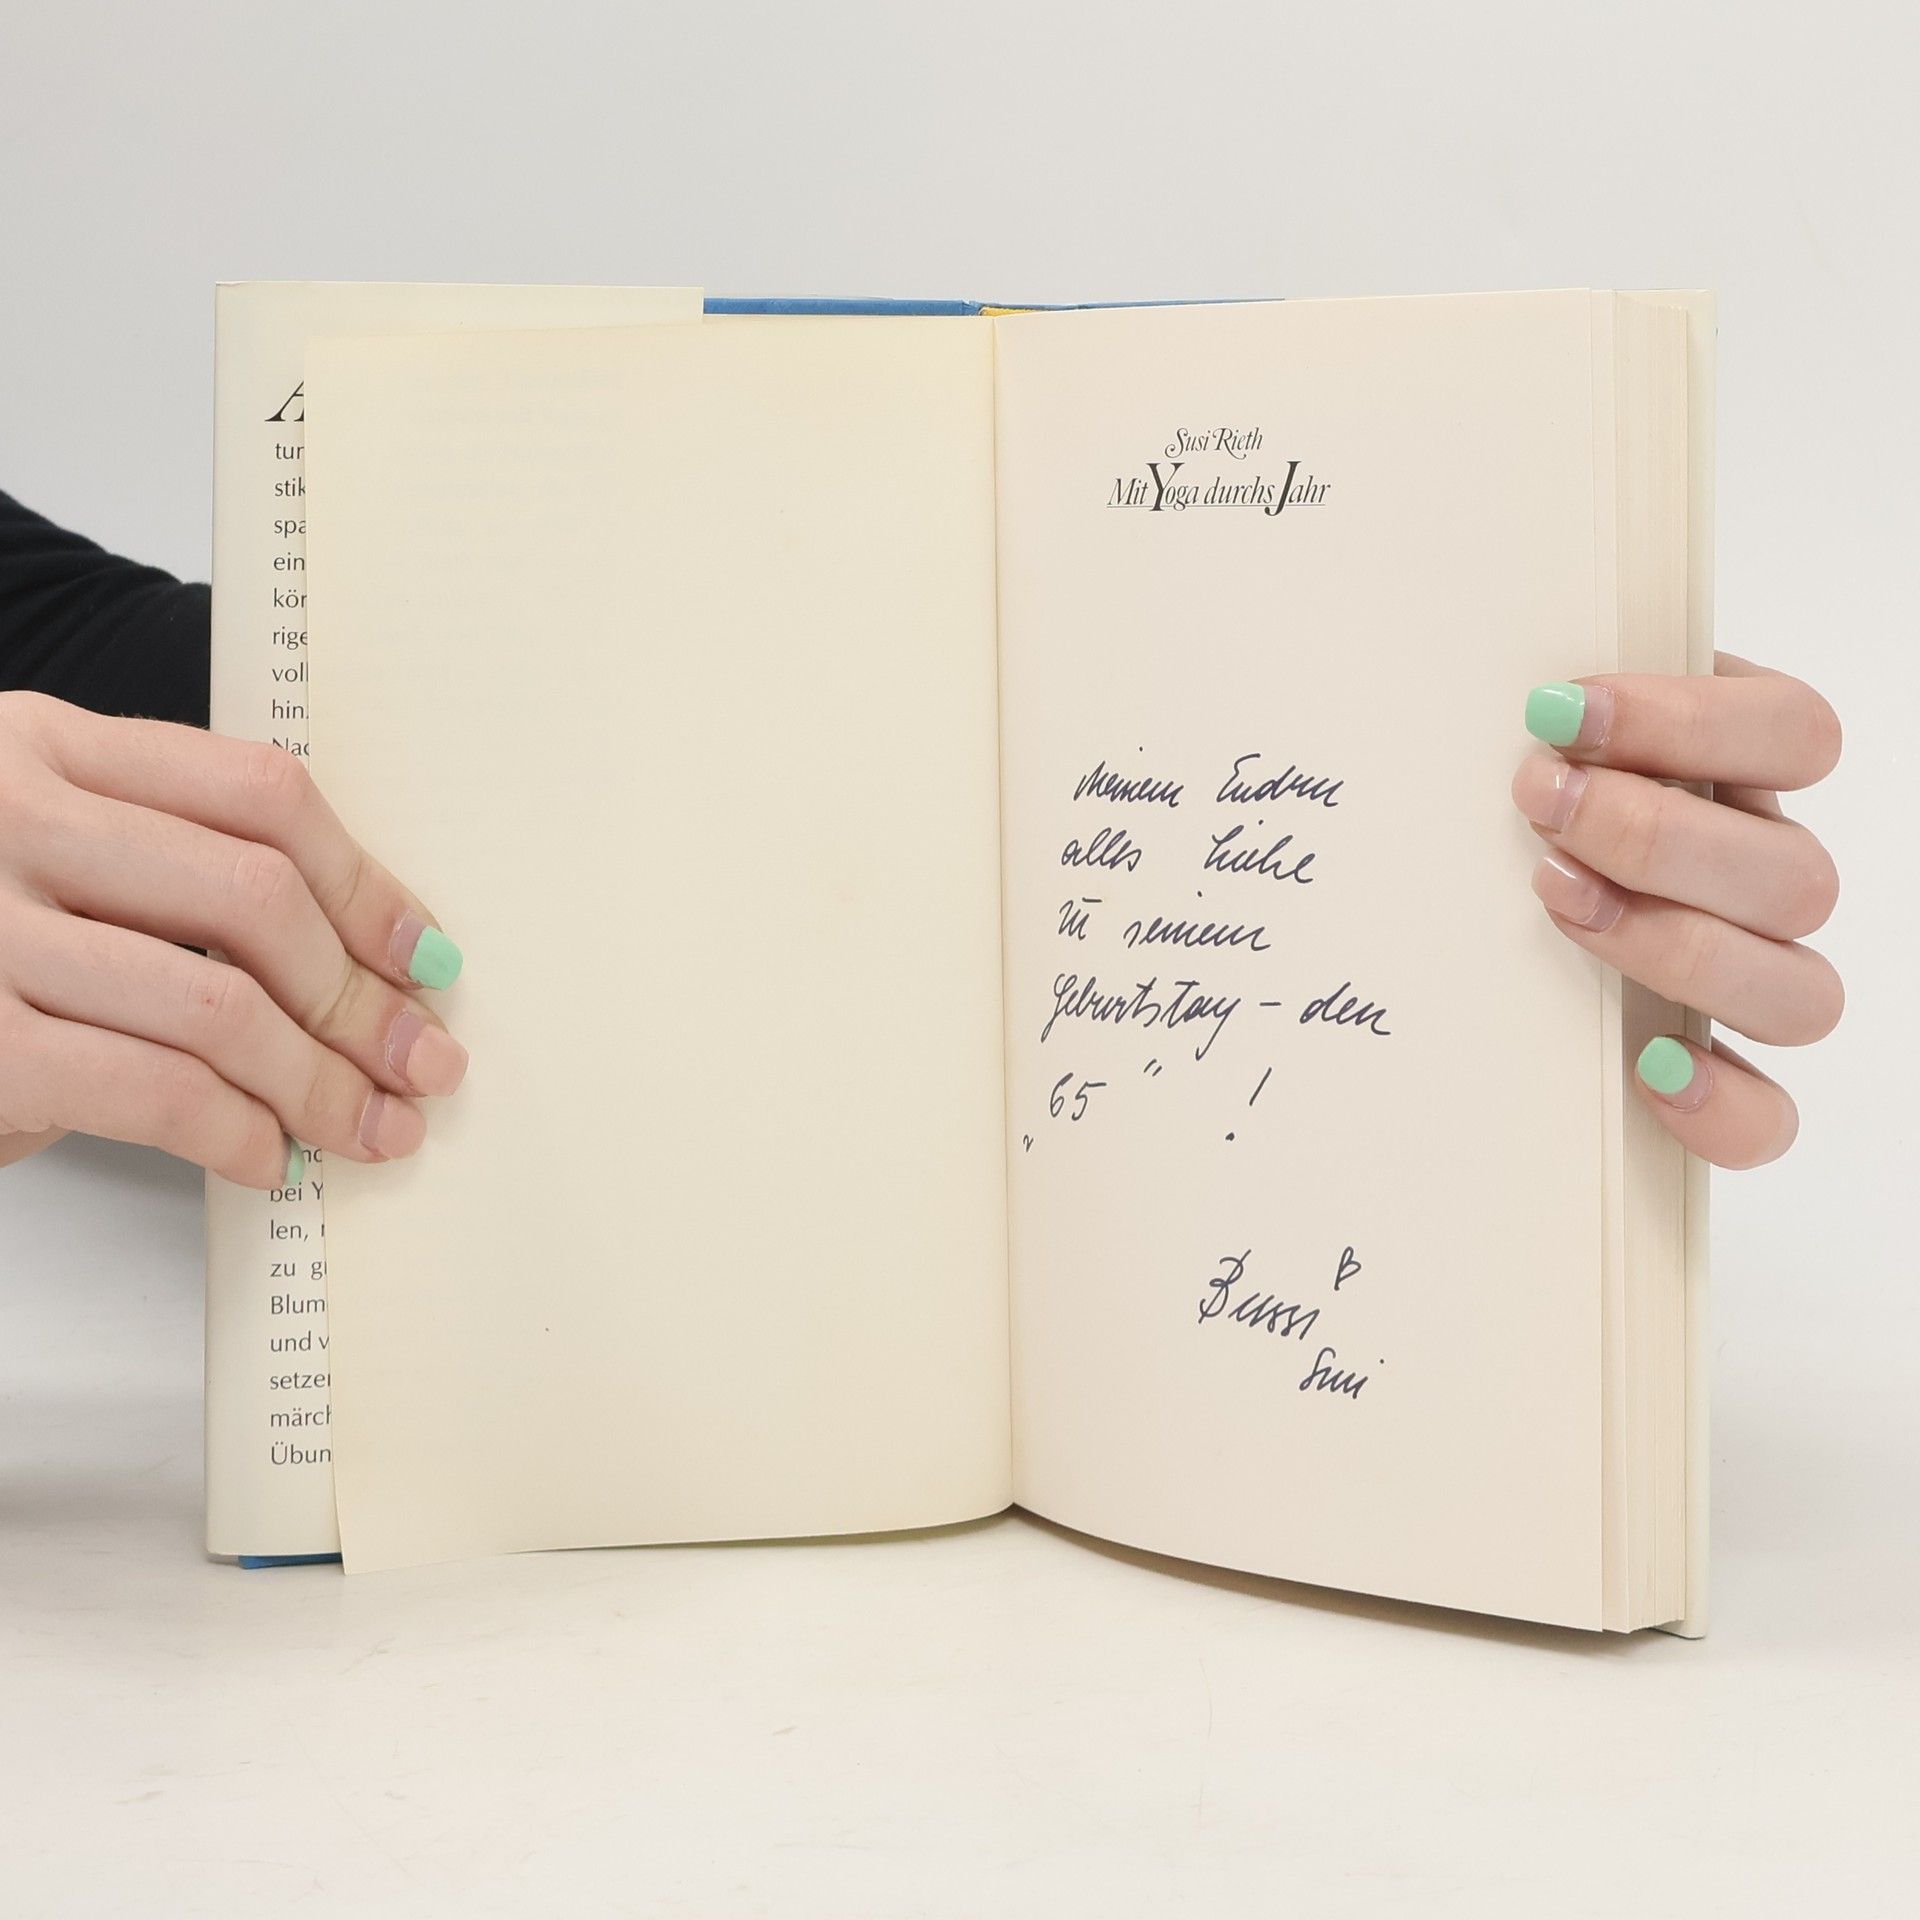 A
tur
stik
spa
ein
kör
rige
voll
hin.
Nac
bei Y
len,
zu g
Blum
und v
setze
märch
Übun
Susi Rieth
Mit Yoga durchs Jahr
meinem
alles Liebe
zu seinem
Geburtstag – den
„65“ !
Bussi
Susi